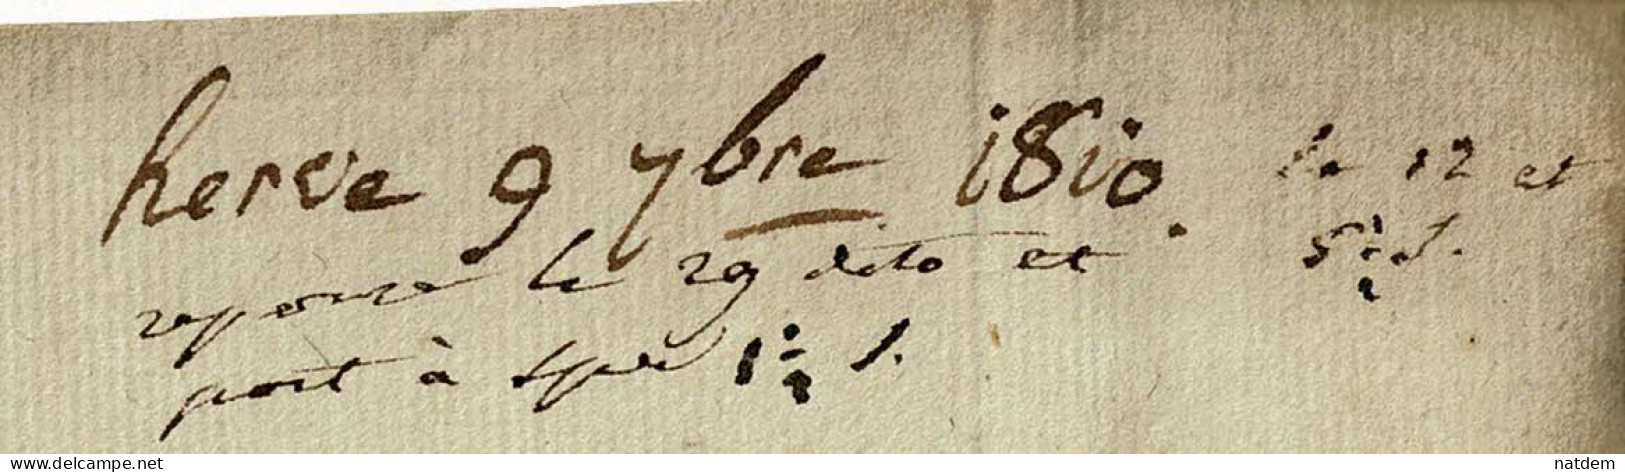 herve 9 7bre 1810. le 12 et
reponse le 29 dito et 5 1/2 s.
port à Spa 1 1/2 s.
delcampe.net
natdem